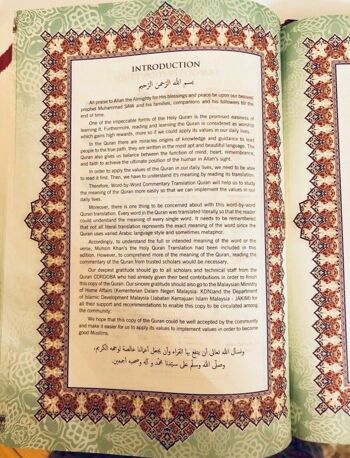 INTRODUCTION
بسم الله الرحمن الرحيم
All praise to Allah the Almighty for His blessings and peace be upon our beloved
prophet Muhammad SAW and his families, companions and his followers till the
end of time.
One of the impeccable forms of the Holy Quran is the promised easiness of
learning it. Furthermore, reading and learning the Quran is considered as worship
which gains high rewards, more so if we could apply its values in our daily lives.
In the Quran there are miracles origins of knowledge and guidance to lead
people to the true path, they are written in the most apt and beautiful language. The
Quran also gives us balance between the function of mind, heart, remembrance
and faith to achieve the ultimate position of the human in Allah's sight.
In order to apply the values of the Quran in our daily lives, we need to be also
to read it first. Then, we have to understand it's meaning by reading its translation.
Therefore, Word-by-Word Commentary Translation Quran will help us to study
the meaning of the Quran more easily so that we can implement the values in our
daily lives.
Moreover, there is one thing to be concerned about with this word-by-word
Quran translation. Every word in the Quran was translated literally so that the reader
could understand the meaning of every single word. It needs to be remembered
that not all literal translation represents the exact meaning of the word since the
Quran uses varied Arabic language style and sometimes metaphor.
Accordingly, to understand the full or intended meaning of the word or the
verse, Muhsin Khan's the Holy Quran Translation had been included in this
edition. However, to comprehend more of the meaning of the Quran, reading the
commentary of the Quran from trusted scholars would be necessary.
Our deepest gratitude should go to all scholars and technical staff from the
Quran CORDOBA who had already given their best contributions in order to finish
this copy of the Quran. Our sincere gratitude should also go to the Malaysian Ministry
of Home Affairs (Kementerian Dalam Negeri Malaysia: KDN)and the Department
of Islamic Development Malaysia (Jabatan Kemajuan Islam Malaysia - JAKIM) for
all their support and recommendations to enable this copy to be circulated among
the community.
We hope that this copy of the Quran could be well accepted by the community
and make it easier for us to apply its values to implement values in order to become
good Muslims.
ونسأل الله تعالى أن ينفع بها القراء وأن يجعل أعمالنا خالصة لوجهه الكريم،
وصلى الله وسلم على سيدنا محمد و آله وصحبه أجمعين.